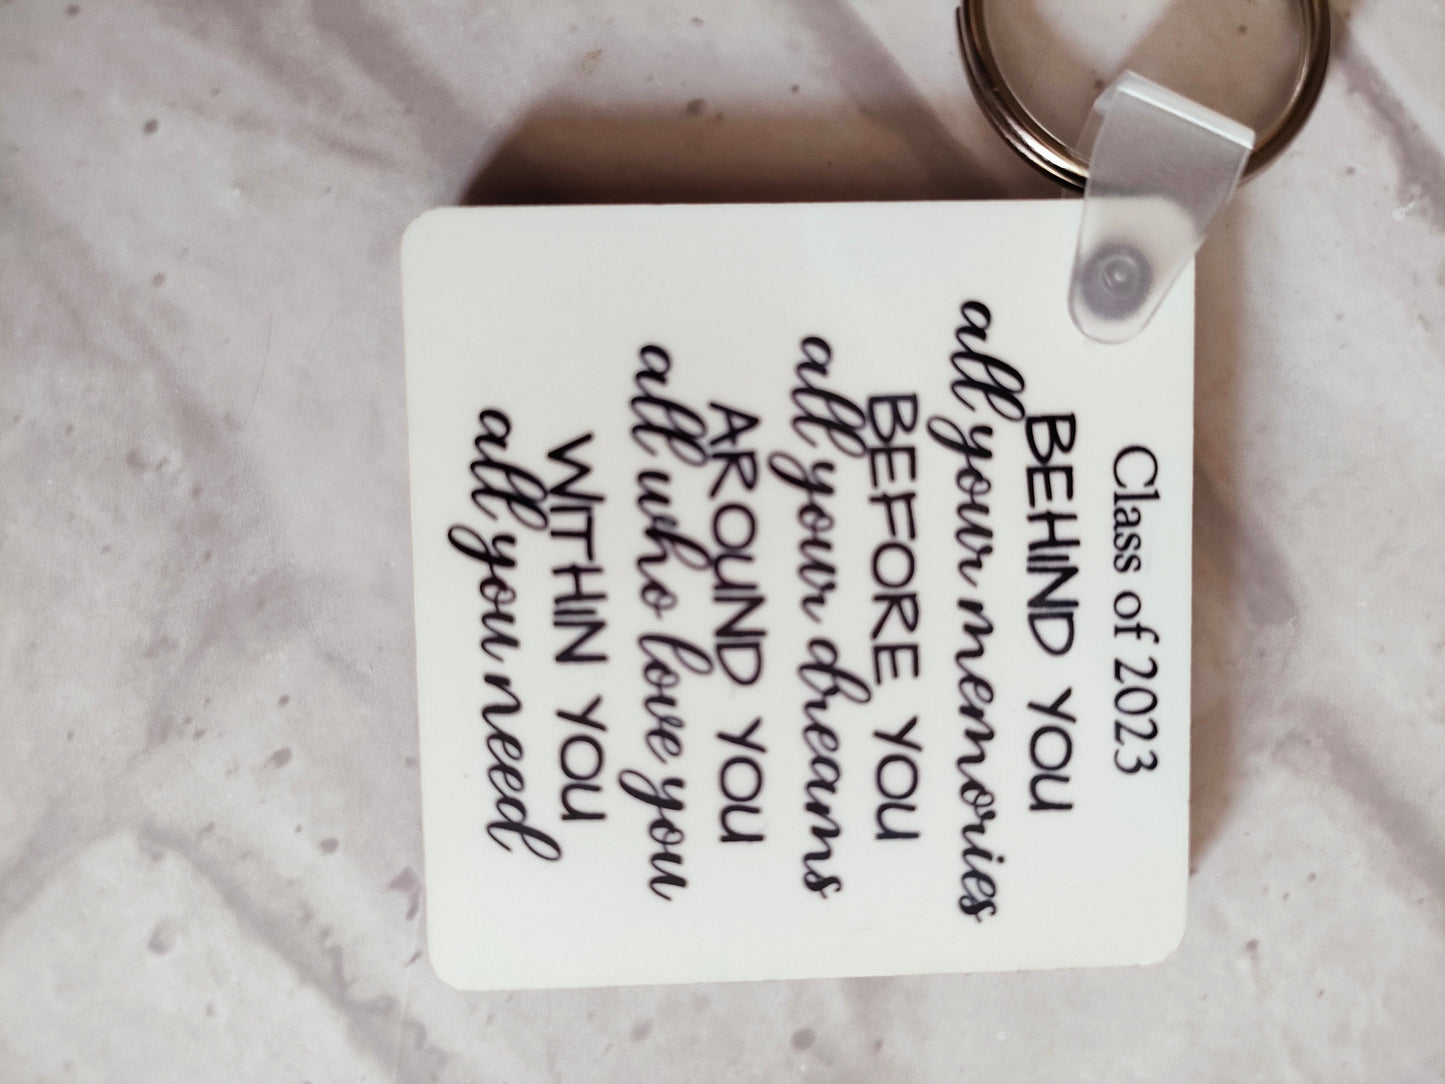 Class of 2023
BEHIND YOU
all your memories
BEFORE YOU
all your dreams
AROUND YOU
all who love you
WITHIN YOU
all you need